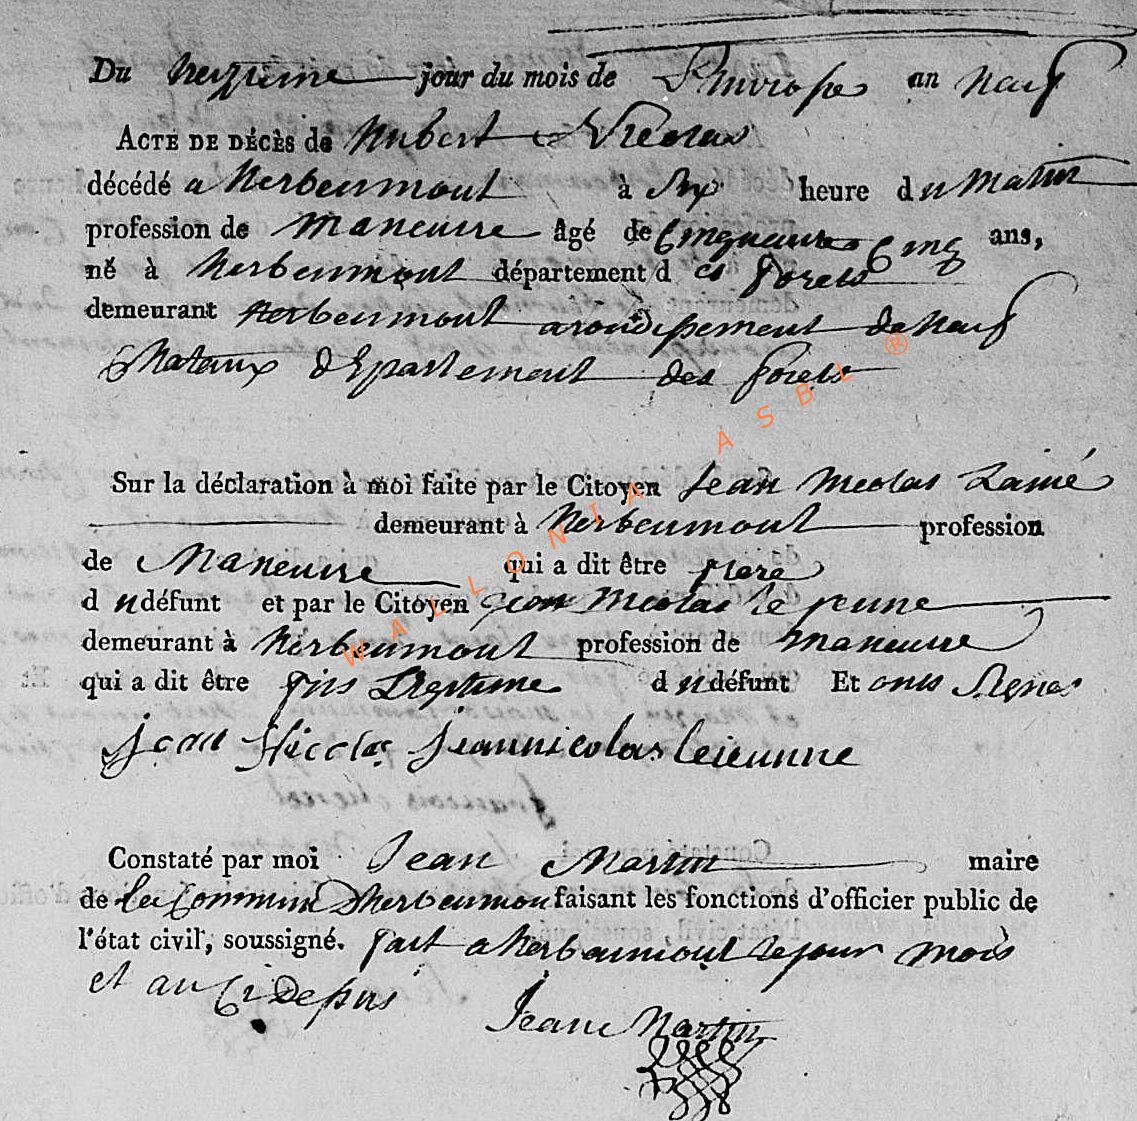 Du neuzieme jour du mois de Pluviose an neuf
ACTE DE DÉCÈS de hubert Nicolas
décédé a herbeumont à Six heure du Matin
profession de Maneuvre âgé de Cinquante Cinq ans,
né à herbeumont département des forets
demeurant herbeumont arondissement de neuf
Chataux département des forets
Sur la déclaration à moi faite par le Citoyen Jean Nicolas Lainé
demeurant à herbeumont profession
de Maneuvre qui a dit être frere
du défunt et par le Citoyen jean Nicolas le jeune
demeurant à herbeumont profession de maneuvre
qui a dit être fils Legitime du défunt Et onts Signes
jean Nicolas jeannicolas leieunne
Constaté par moi Jean Martin maire
de la Commune dherbeumon faisant les fonctions d'officier public de
l'état civil, soussigné. fait a herbeumont le jour mois
et an Ci De
Jean Martin
WALLONIA ASBL ®